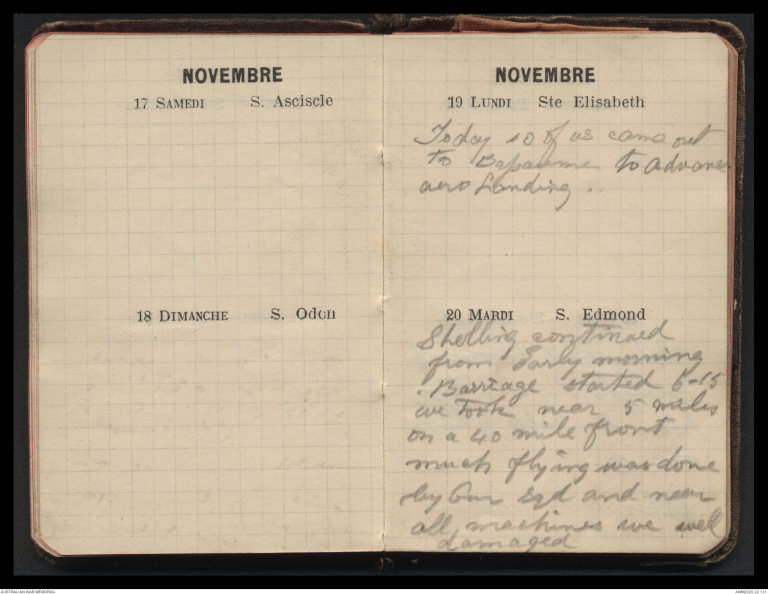 NOVEMBRE
17 SAMEDI S. Asciscle
18 DIMANCHE S. Odon
NOVEMBRE
19 LUNDI Ste Elisabeth
Today 10 of us came out
to Bapaume to advance
aero Landing ..
20 MARDI S. Edmond
Shelling continued
from Early morning
. Barrage started 6-15
we took near 5 miles
on a 40 mile front
much flying was done
by Our Sqd and near
all machines we well
damaged
AUSTRALIAN WAR MEMORIAL